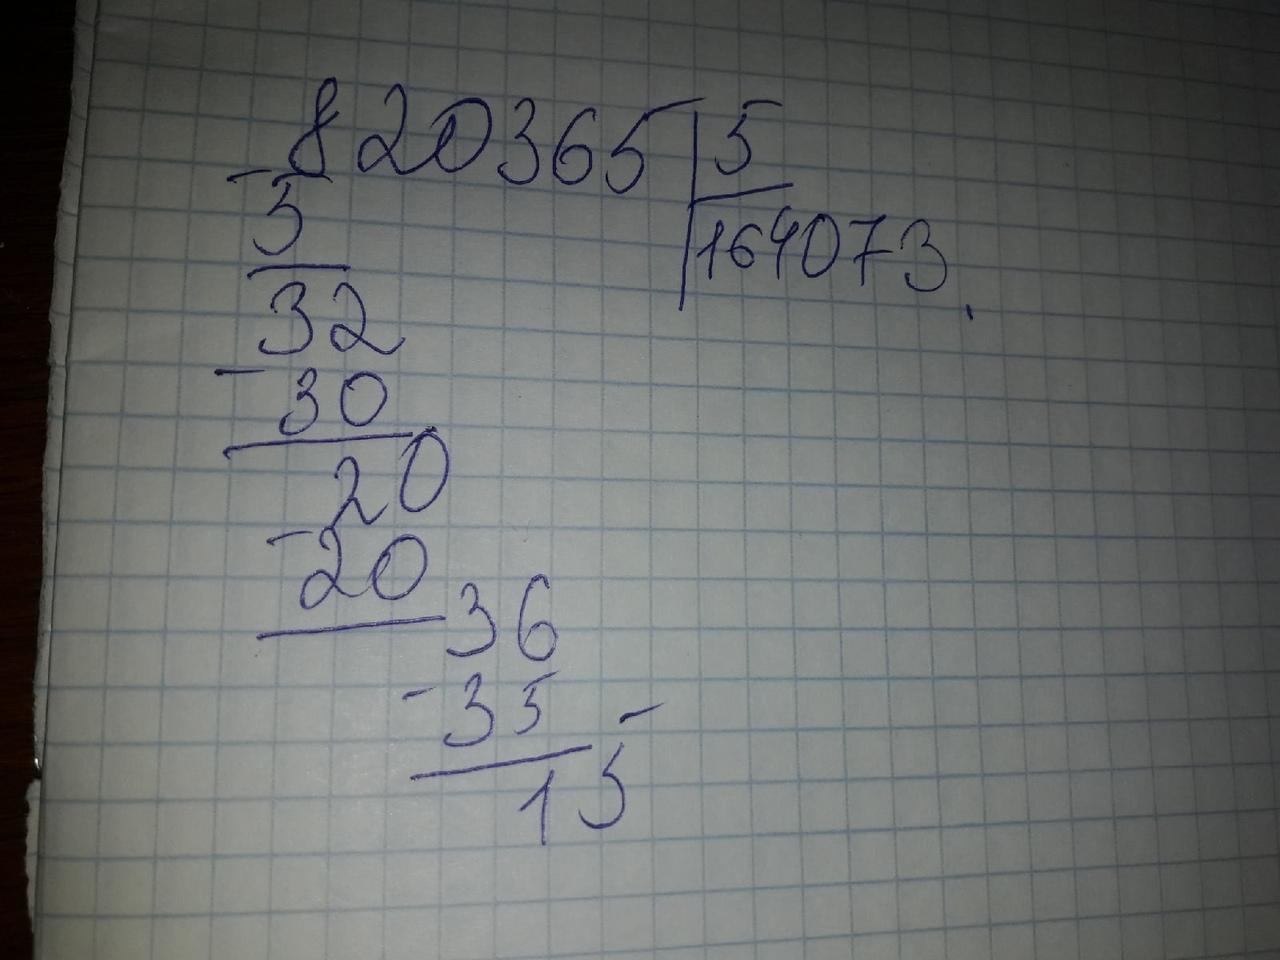 820365 5
- 5 164073.
32
- 30
20
- 20
36
- 35
15